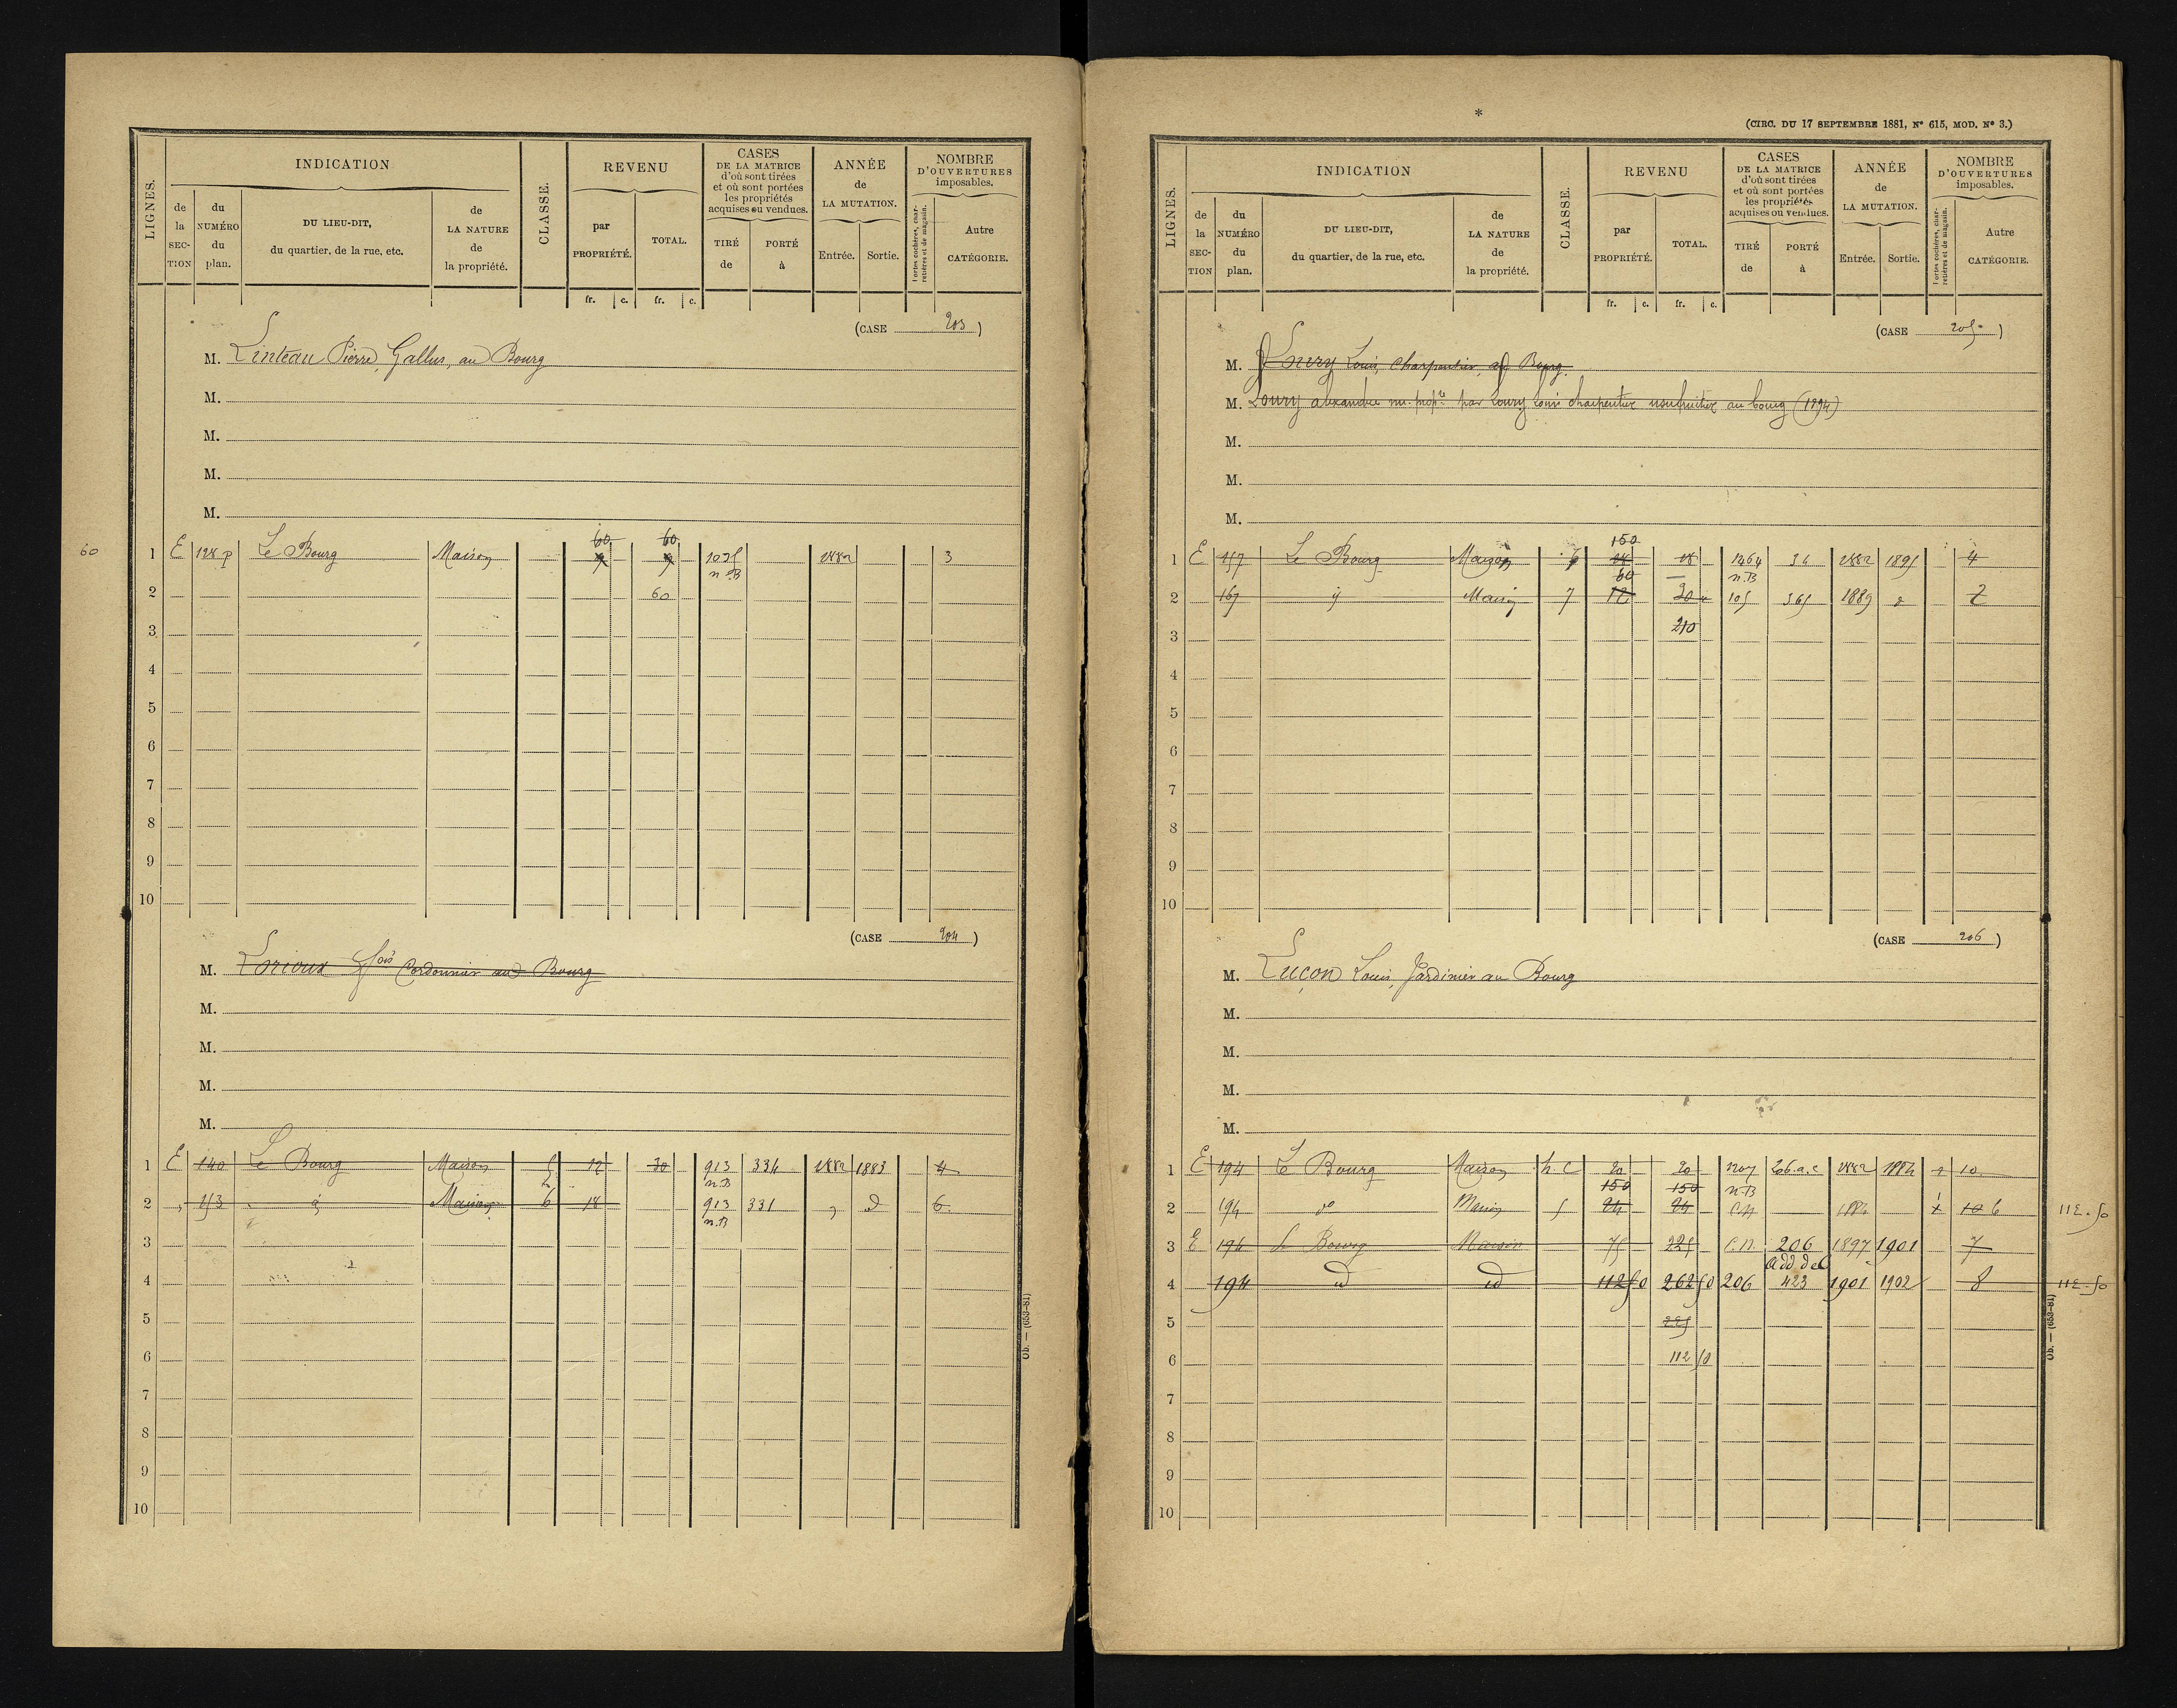 LIGNES.
INDICATION
de la SECTION
du NUMÉRO du plan.
DU LIEU-DIT, du quartier, de la rue, etc.
de LA NATURE de la propriété.
CLASSE.
REVENU
par PROPRIÉTÉ.
TOTAL.
fr. c. fr. c.
CASES DE LA MATRICE d'où sont tirées et où sont portées les propriétés acquises ou vendues.
TIRÉ de
PORTÉ à
ANNÉE de LA MUTATION.
Entrée. Sortie.
NOMBRE D'OUVERTURES imposables.
Portes cochères, charretières et de magasin.
Autre CATÉGORIE.
(CASE 203)
M. Linteau Pierre, Gallus, au Bourg
M.
M.
M.
M.
60
1 E 128 p Le Bourg Maison 60 9 60 9 1035 n.B 1882 3
2 60
3
4
5
6
7
8
9
10
(CASE 204)
M. Lorioux fois Cordonnier au Bourg
M.
M.
M.
M.
1 E 140 Le Bourg Maison 5 12 30 913 n.B 334 1882 1883 4
2 153 Maison 6 18 913 n.B 331 6
3
4
5
6
7
8
9
10
Ob. — (653-81)
*
(CIRC. DU 17 SEPTEMBRE 1881, N° 615, MOD. N° 3.)
LIGNES.
INDICATION
de la SECTION
du NUMÉRO du plan.
DU LIEU-DIT, du quartier, de la rue, etc.
de LA NATURE de la propriété.
CLASSE.
REVENU
par PROPRIÉTÉ.
TOTAL.
fr. c. fr. c.
CASES DE LA MATRICE d'où sont tirées et où sont portées les propriétés acquises ou vendues.
TIRÉ de
PORTÉ à
ANNÉE de LA MUTATION.
Entrée. Sortie.
NOMBRE D'OUVERTURES imposables.
Portes cochères, charretières et de magasin.
Autre CATÉGORIE.
(CASE 205)
M. Loury Louis, Charpentier, au Bourg
M. Loury alexandre nu-propre par Loury Louis charpentier usufruitier au bourg (1894)
M.
M.
M.
1 E 157 Le Bourg Maison 6 150 18 18 1264 n.B 36 1882 1895 4
2 167 Maison 7 60 12 30 105 365 1889 2
3 210
4
5
6
7
8
9
10
(CASE 206)
M. Luçon Louis, Jardinier au Bourg
M.
M.
M.
M.
1 E 194 Le Bourg Maison h.c 20 20 1207 n.B 206 a.c 1882 1884 10
2 194 do Maison 5 150 24 150 24 C.N 1884 1 10 6 112.50
3 E 194 Le Bourg Maison 75 225 C.N 206 add de C 1897 1901 7
4 194 id id 112 50 262 50 206 423 1901 1902 8 112.50
5 225
6 112 50
7
8
9
10
Ob. — (653-81)